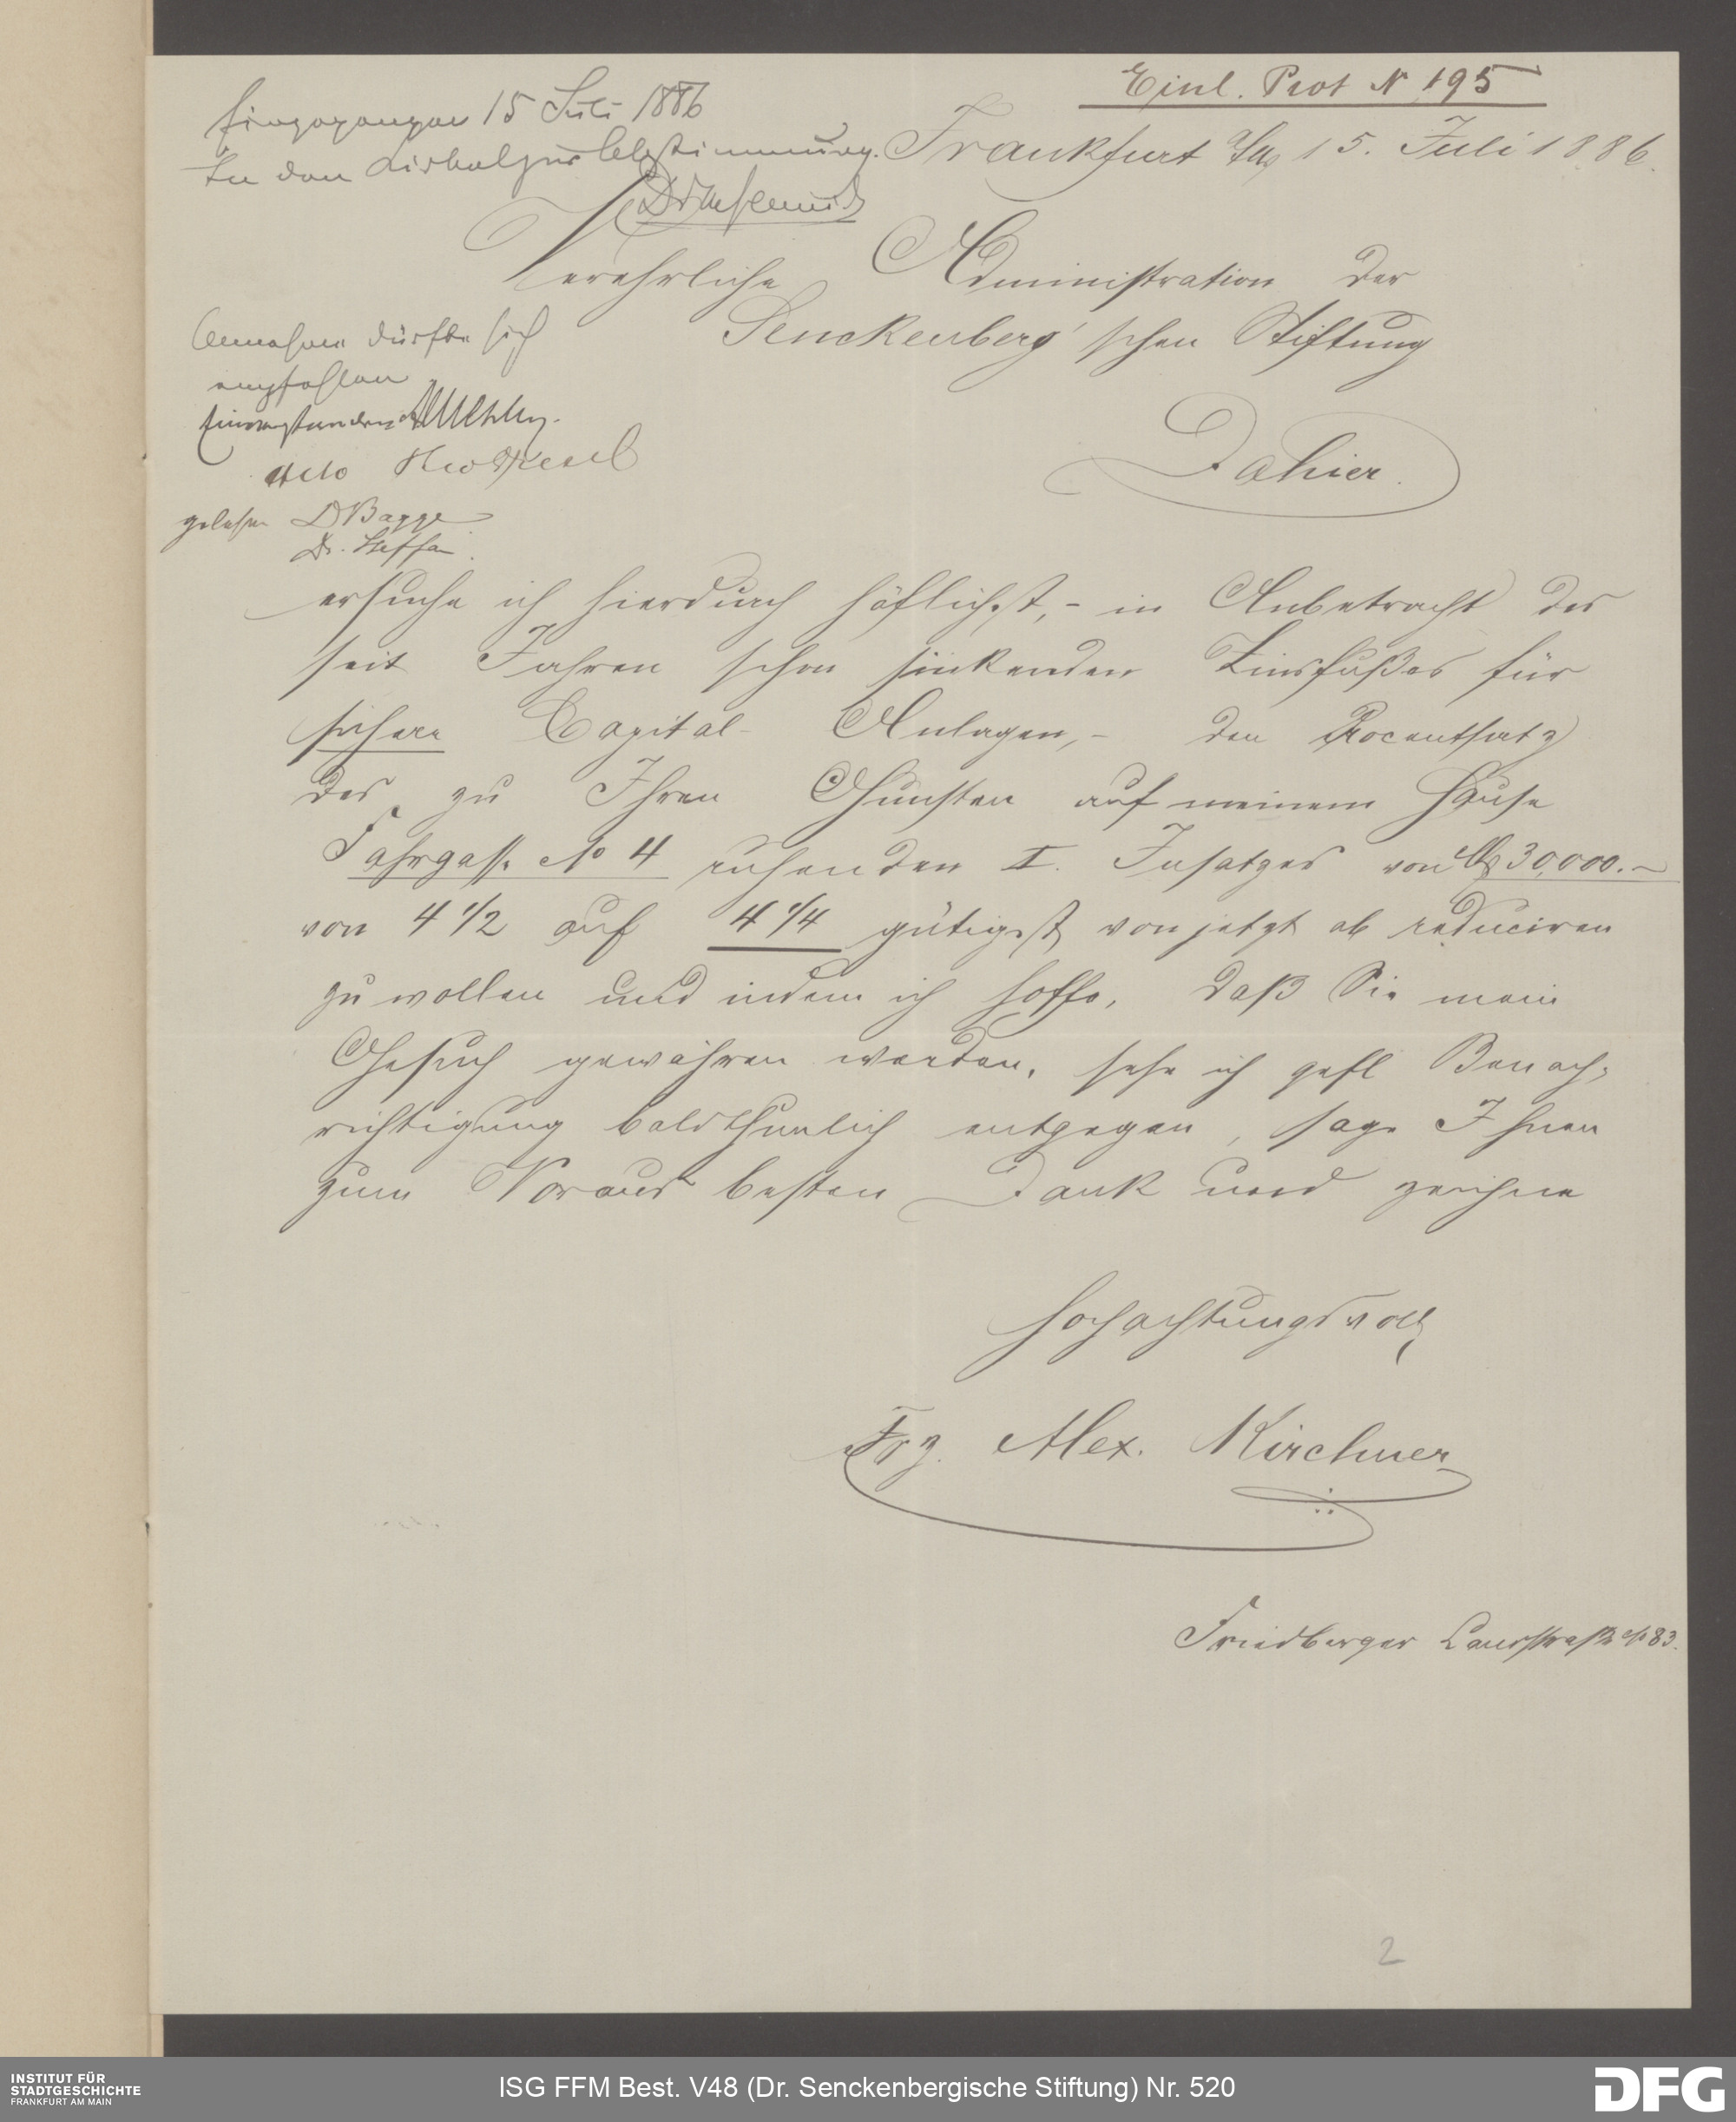 Einl. Prot N 195
Eingegangen 15 Juli 1886
In den Lirkel zur Abstimmung.
Frankfurt a/M 15. Juli 1886.
Verehrliche Administration der
Senckenberg'schen Stiftung
Dahier.
Annahme dürfte sich
empfehlen
Einverstanden
dito
gelesen D Bagge
Dr. Steffan
ersuche ich hierdurch höflichst, - in Anbetracht des
seit Jahren schon sinkenden Zinsfußes für
sichere Capital- Anlagen, - den Procentsatz
des zu Ihren Gunsten auf meinem Hause
Fahrgasse No 4 ruhenden I. Insatzes von M 30,000.-
von 4 1/2 auf 4 1/4 gütigst von jetzt ab reduciren
zu wollen und indem ich hoffe, daß Sie mein
Gesuch gewähren werden, sehe ich gefl Benach-
richtigung baldthunlich entgegen, sage Ihnen
zum Voraus besten Dank und zeichne
Hochachtungsvoll
Frz. Alex. Kirchner
Friedberger Landstraße No 83.
2
INSTITUT FÜR
STADTGESCHICHTE
FRANKFURT AM MAIN
ISG FFM Best. V48 (Dr. Senckenbergische Stiftung) Nr. 520
DFG